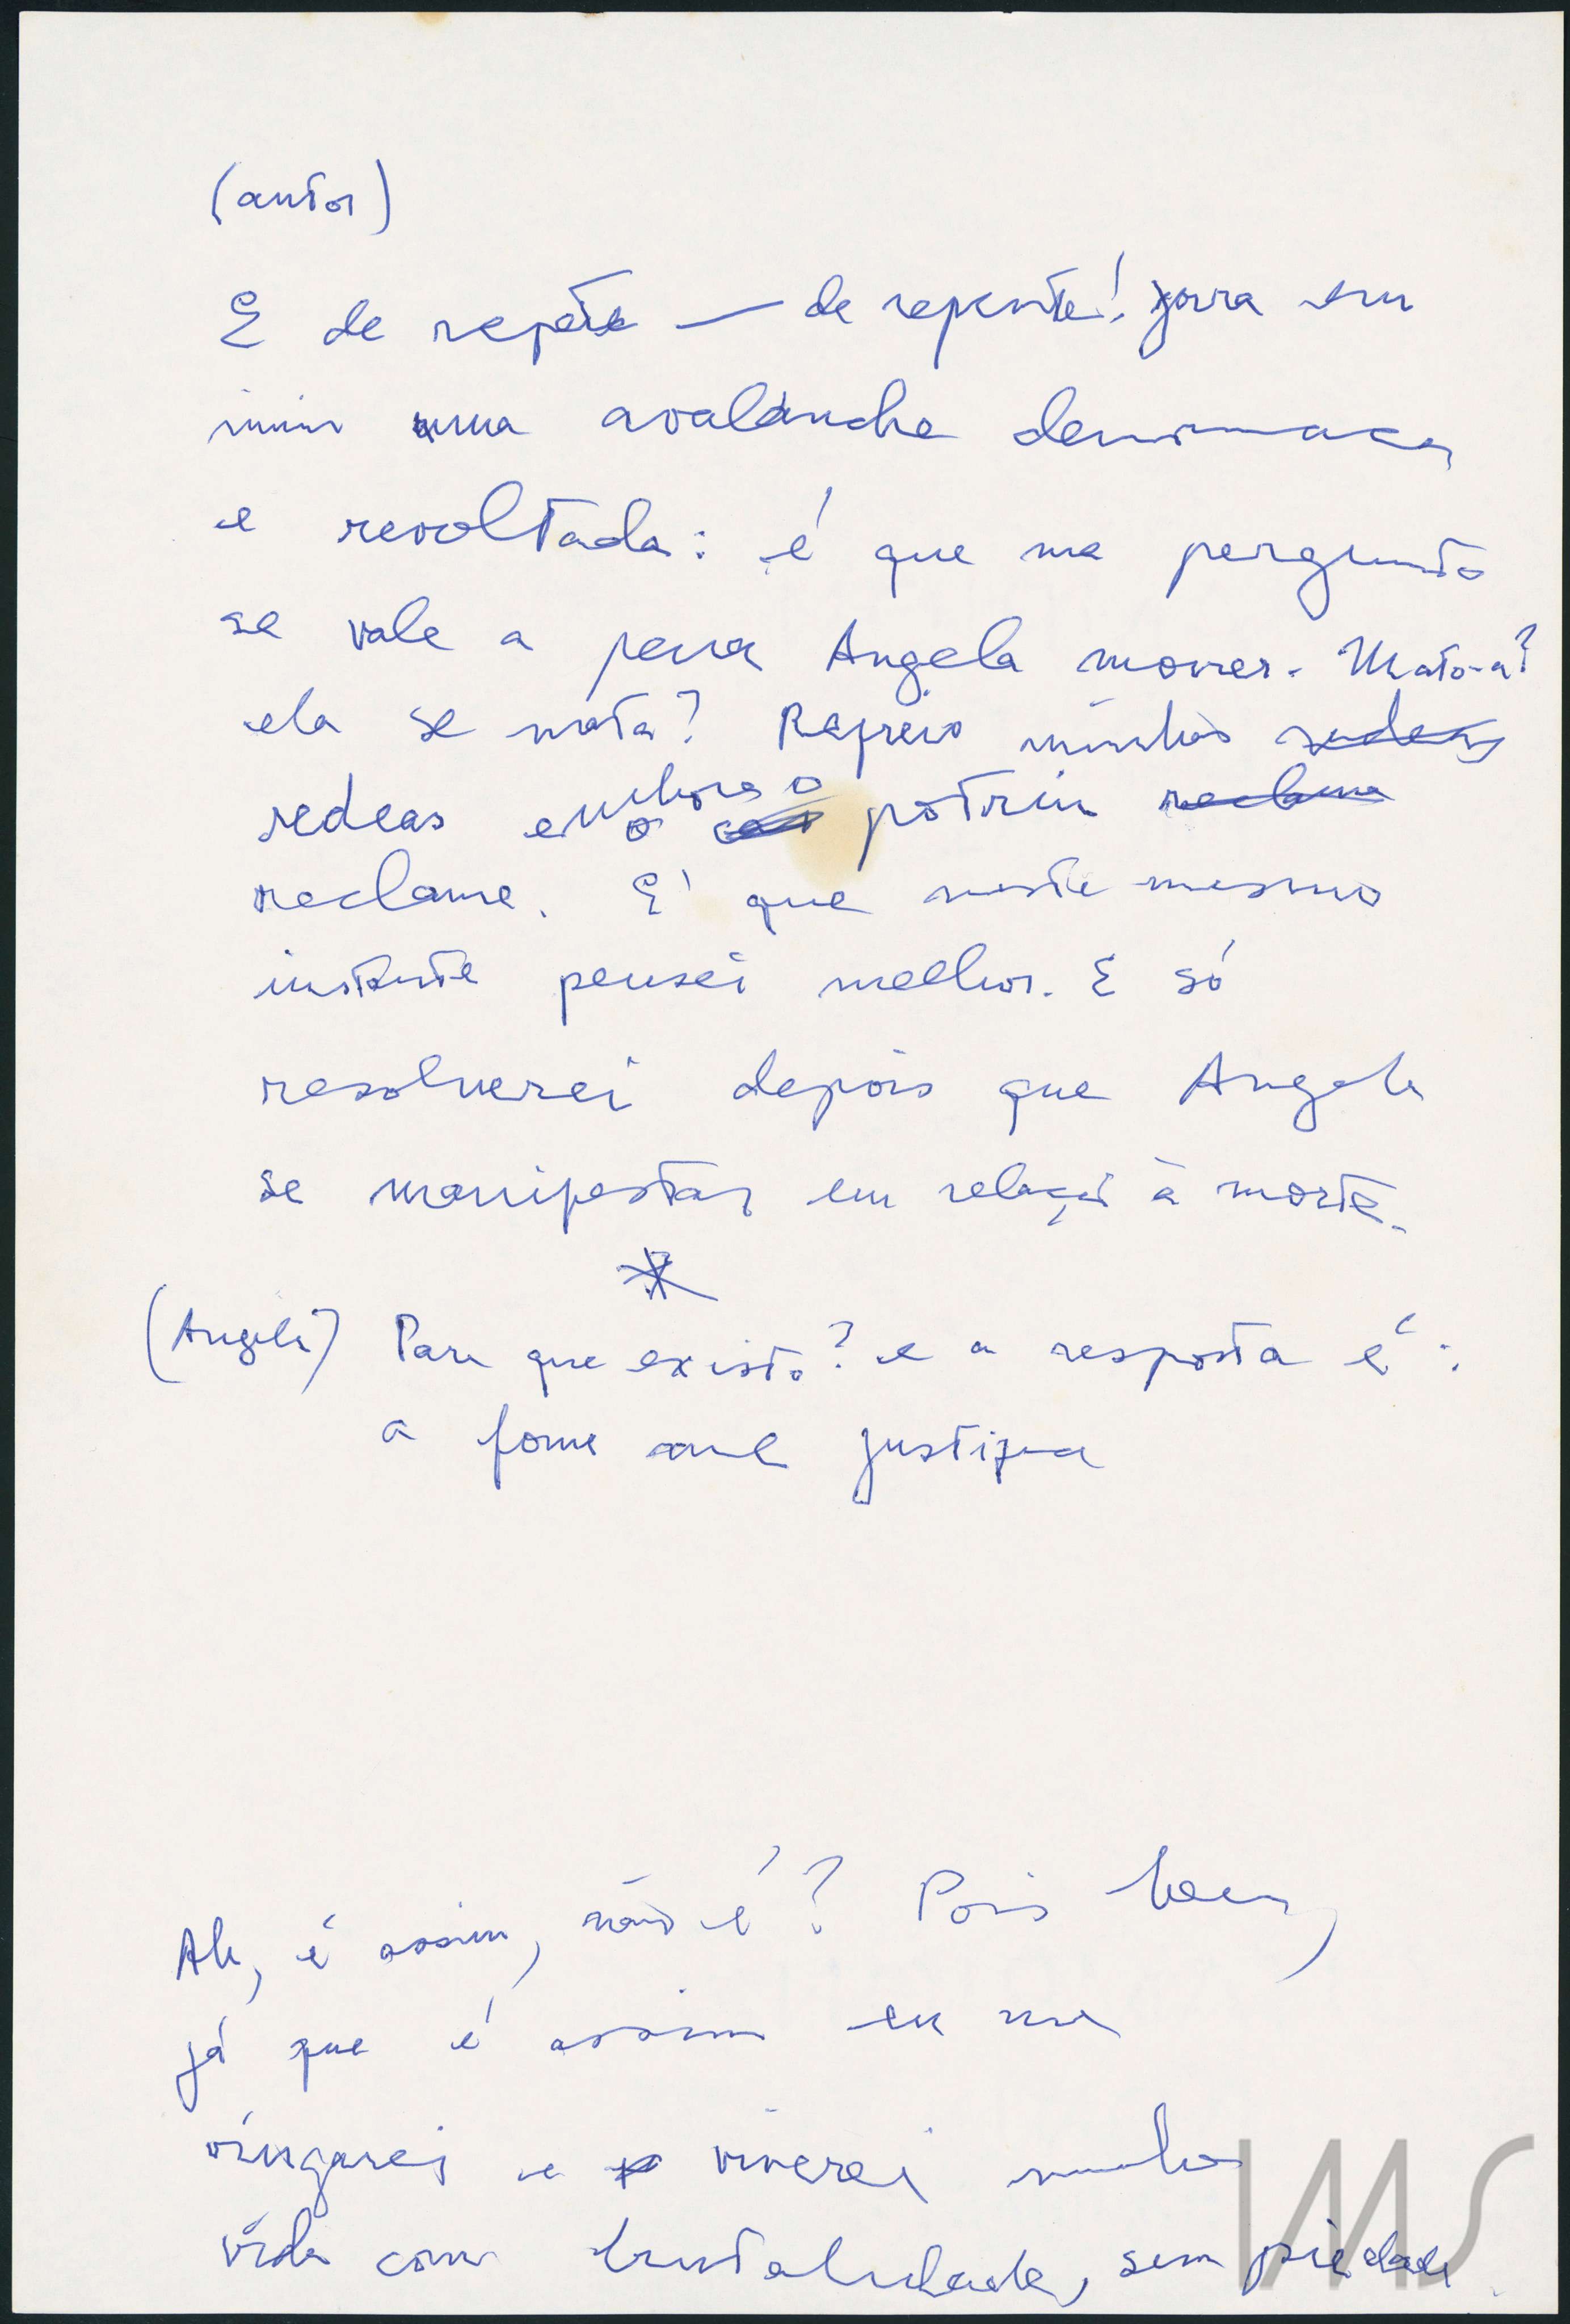 (autor)
E de repete — de repente! jorra em
mim uma avalanche demoníaca
e revoltada: é que me pergunto
se vale a pena Angela morrer. Mato-a?
ela se mata? Refreio minhas redeas
redeas embora o potrin reclama
reclame. E' que neste mesmo
instante pensei melhor. E só
resolverei depois que Angela
se manifestar em relação à morte.
*
(Angela) Para que existo? e a resposta é:
a fome me justifica
Ah, é assim, não é? Pois bem,
já que é assim eu me
vingarei e viverei minha
vida com brutalidade, sem piedade.
IMS